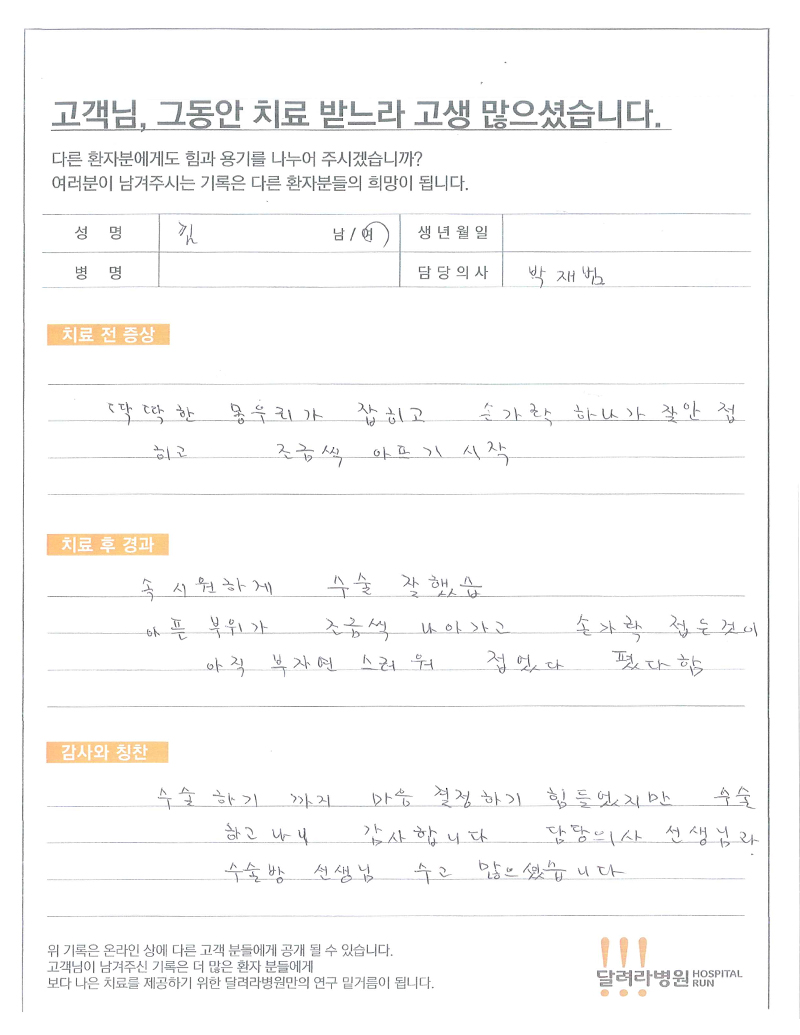 고객님, 그동안 치료 받느라 고생 많으셨습니다.
다른 환자분에게도 힘과 용기를 나누어 주시겠습니까?
여러분이 남겨주시는 기록은 다른 환자분들의 희망이 됩니다.
성 명 김 남 / 여 생년월일
병 명 담당의사 박재범
치료 전 증상
딱딱한 몽우리가 잡히고 손가락 하나가 잘안 접
히고 조금씩 아프기 시작
치료 후 경과
속 시원하게 수술 잘했습
아픈 부위가 조금씩 나아가고 손가락 접는것이
아직 부자연 스러워 접었다 폈다함
감사와 칭찬
수술 하기 까지 마음 결정하기 힘들었지만 수술
하고 나니 감사합니다 담당의사 선생님과
수술방 선생님 수고 많으셨습니다
위 기록은 온라인 상에 다른 고객 분들에게 공개 될 수 있습니다.
고객님이 남겨주신 기록은 더 많은 환자 분들에게
보다 나은 치료를 제공하기 위한 달려라병원만의 연구 밑거름이 됩니다.
!!! 달려라병원 HOSPITAL RUN